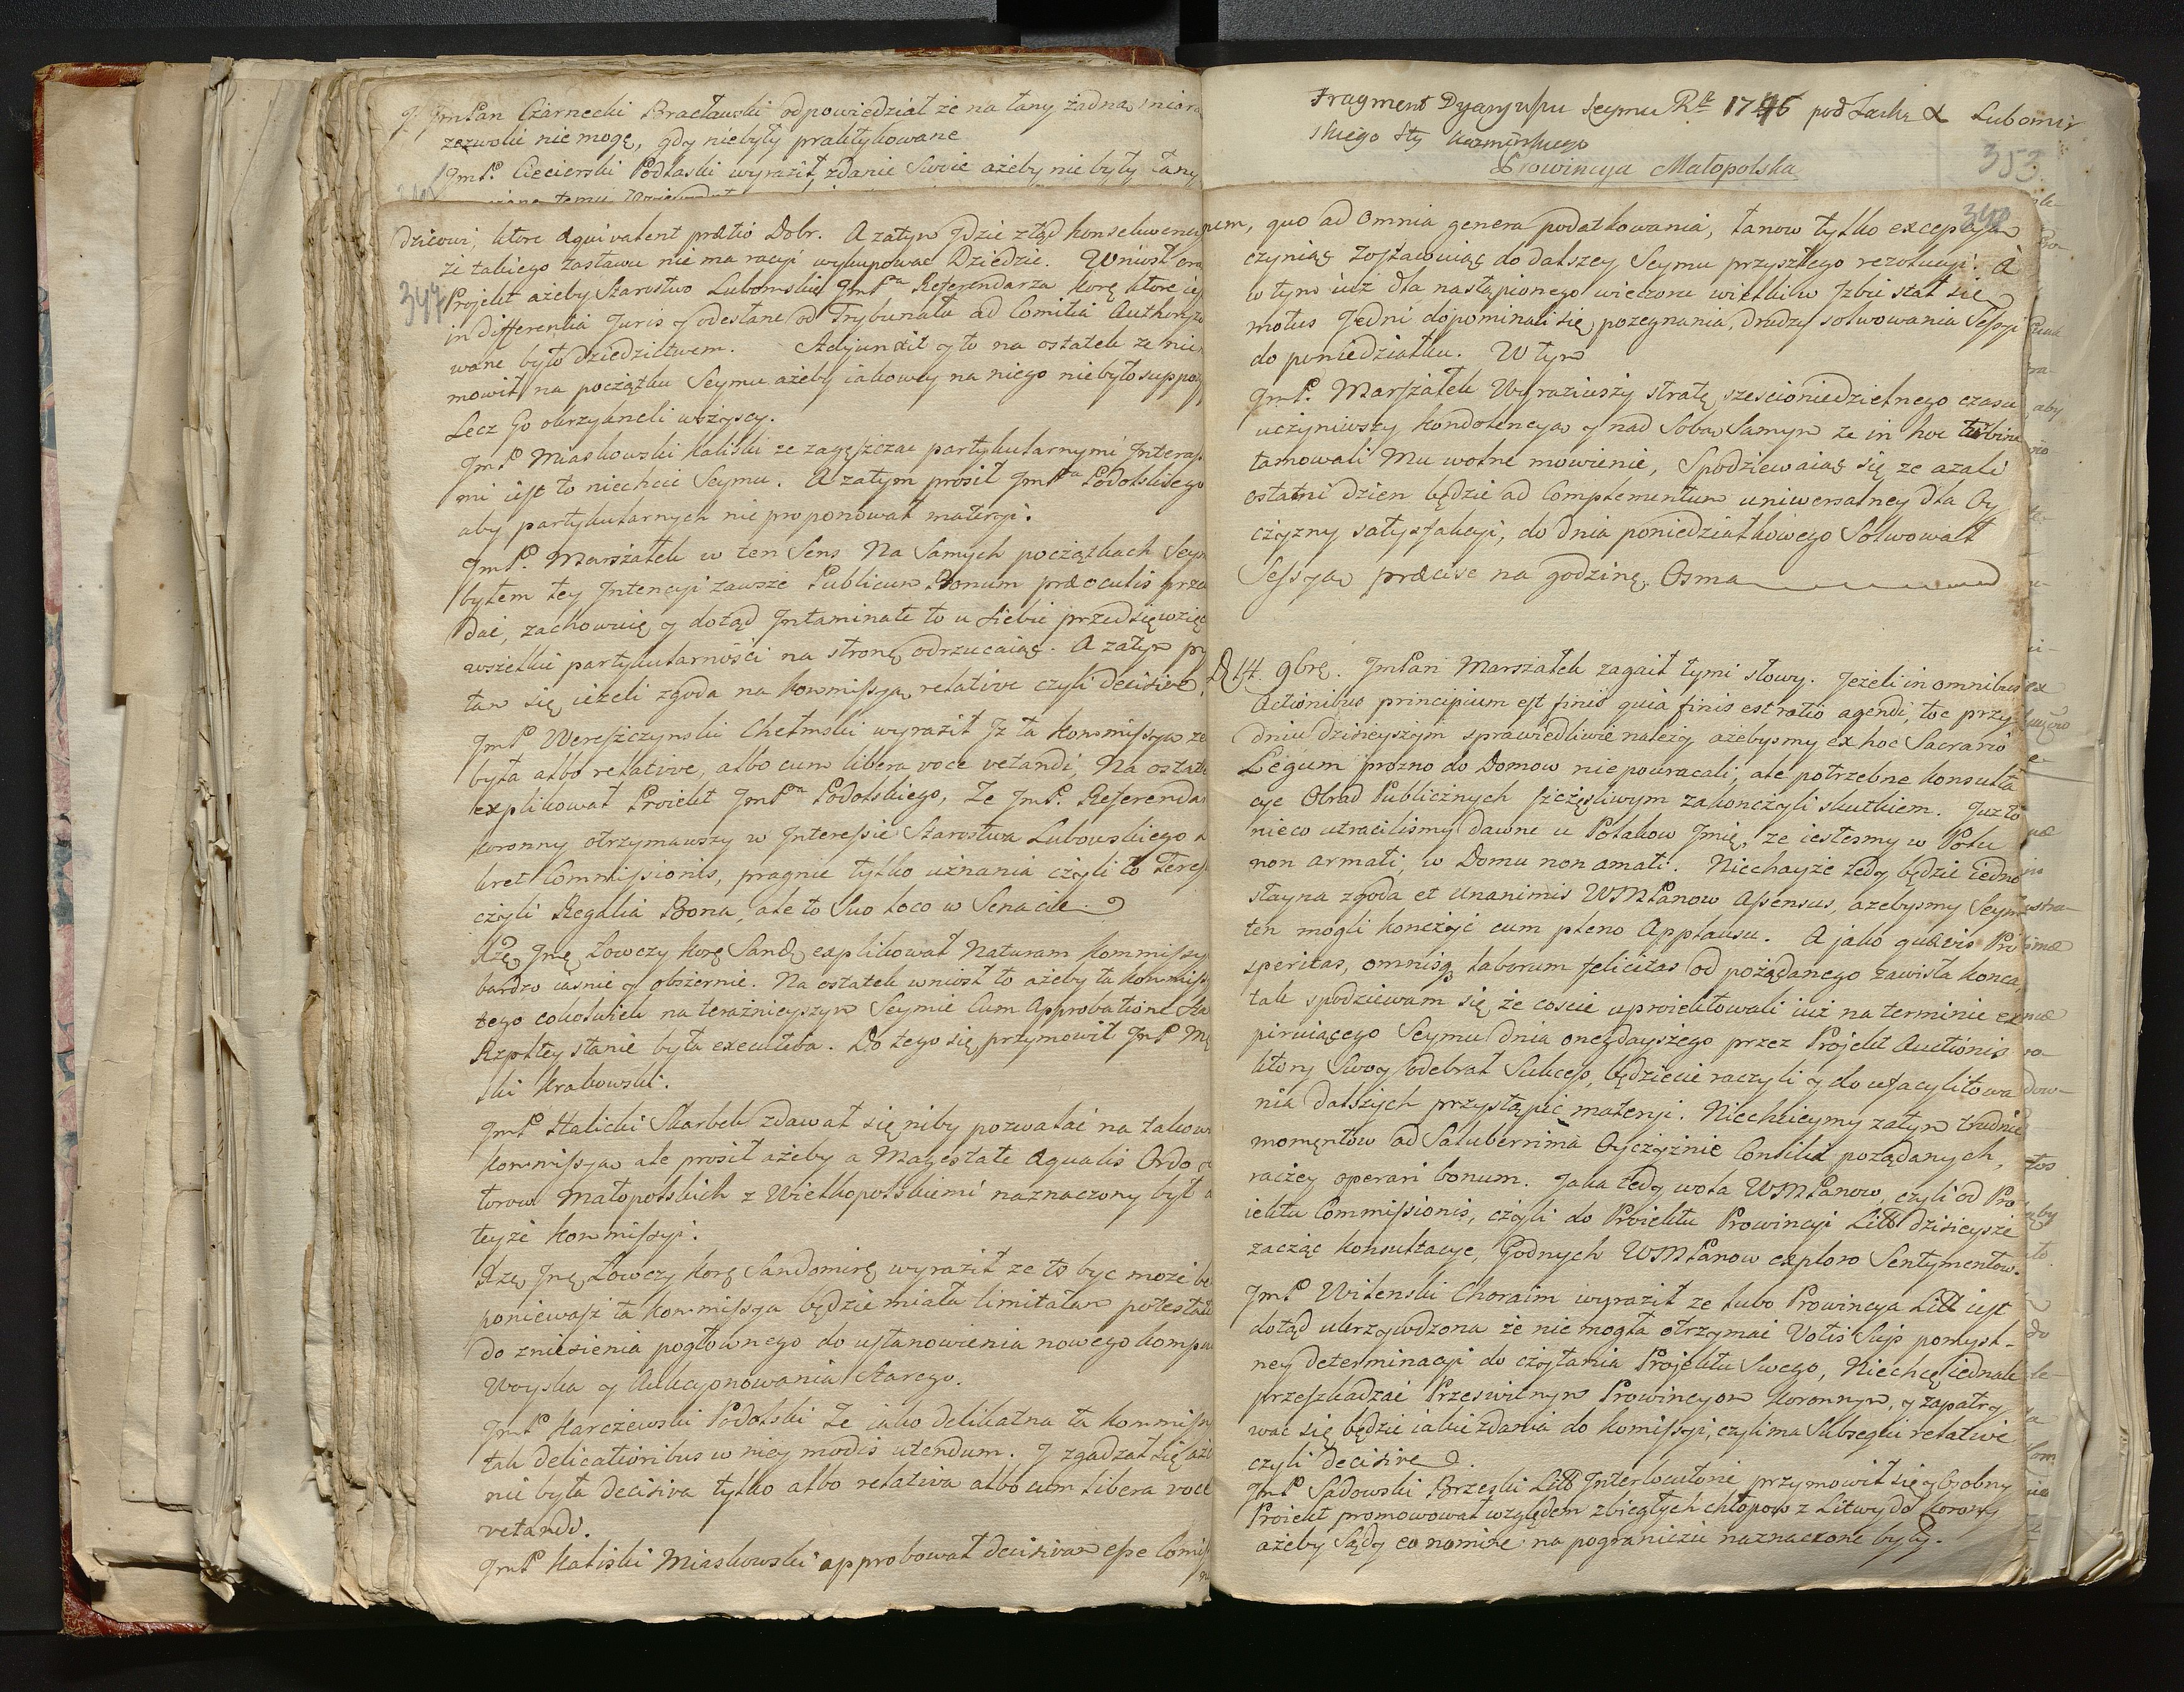 JmPan Czarnecki Bracławski odpowiedział że na łany żadną miarą
zezwolić nie mogę, gdy niebyły praktykowane
JmP. Ciecierski Podlaski wyraził zdanie Swoie ażeby nie były łany
347
dzicowi, ktore æquivalent prætio Dobr. A zatym Jdzie ztąd konsekwency
że takiego zastawu nie ma racyi wykupować Dziedzic. Wniosł
Projekt ażeby Starostwo Lubomskie JmPna Referendarza Korę ktore
in differentia Juris y odesłane od Trybunału ad Comitia Authoryzo
wane było dziedzictwem. Adjunxit y to na ostatek że nie
mowił na początku Seymu ażeby iakowey na niego niebyło suppozy
Lecz Go okrzyknęli wszyscy.
JmP Miaskowski Kaliski że zagęszczać partykularnymi Interess
mi iest to niechcieć Seymu. A zatym prosił JmPna Podolskiego
aby partykularnych nie proponował materyi.
JmP. Marszałek w ten Sens Na Samych początkach Seym
byłem tey Intencyi zawsze Publicum Bonum præ oculis
dać, zachowuię y dotąd Intaminate to u siebie przedsięwzięc
wszelkie partykularności na stronę odrzucaiąc. A zatym py
tam się ieżeli zgoda na kommissyą relative czyli decisive,
JmP Wereszczynski Chełmski wyraził Jż ta kommissya
była albo relative, albo cum libera voce vetandi, Na ostatek
explikował Proiekt JmPna Podolskiego, że JmP. Referendarz
koronny otrzymawszy w Interessie Starostwa Lubowskiego
kret Commissionis, pragnie tylko uznania czyli to
czyli Regalia Bona, ale to Suo loco w Senacie.
Xżę Jmę Łowczy Korę Sandę explikował Naturam Kommissy
bardzo iasnie y obszernie. Na ostatek wniosł to ażeby ta kommiss
tego cokolwiek na teraźnieyszym Seymie Cum Approbatione
Rzpltey stanie była executiva. Do tego się przymowił JmP
ski Krakowski.
JmP Halicki Skarbek zdawał się niby pozwalać na takow
kommissyą ale prosił ażeby a Mayestate æqualis Ordo
torow Małopolskich z Wielkopolskiemi naznaczony był
teyże kommissyi.
Xżę Jmę Łowczy Korę Sandomirę wyraził że to być może
ponieważ ta kommissya będzie miała limitatam potestate
do zniesienia pogłownego do ustanowienia nowego komp
Woyska y Aukcyonowania Starego.
JmP Karczewski Podolski że iako delikatna ta kommiss
tak delicatioribus w niey modis utendum. J zgadzał się
nie była decisiva tylko albo relativa albo cum libera voce
vetandi.
JmP Kaliski Miaskowski approbował decisivam esse
Fragment Dyaryuszu Seymu Rku 1746 pod Laską X Lubomir
skiego Sty Kazimirskiego
Prowincya Małopolska
353
348
nem, quo ad omnia genera podatkowania, łanow tylko excepcyą
czyniąc zostawuiąc do dalszey Seymu przyszłego rezolucyi. A
w tym iuż dla nastąpionego wieczoru wielki w Jzbie stał się
motus Jedni dopominali się pożegnania, drudzy solwowania Sessyi
do poniedziałku. W tym
JmP. Marszałek Wyraziwszy stratę sześcioniedzielnego czasu
uczyniwszy kondolencyą y nad Sobą Samym że in hoc turbine
tamowali Mu wolne mowienie, Spodziewaiąc się że azali
ostatni dzien będzie ad Complementum uniwersalney dla Oy
czyzny satysfakcyi, do dnia poniedziałkowego Solwował
Sessyą præcise na godzinę Osmą
D. 14. 9brę. JmPan Marszałek zagaił tymi słowy. Jeżeli in omnibus
Actionibus principium est finis quia finis est ratio agendi, toć przy
dniu dzisieyszym sprawiedliwie należy ażebysmy ex hoc Sacrario
Legum prozno do Domow nie powracali, ale potrzebne konsulta
cye Obrad Publicznych szczęsliwym zakończyli skutkiem. Już to
nieco utracilismy dawne u Polakow Jmię, że iestesmy w Polu
non armati, w Domu non amati. Niechayże tedy będzie iedno
stayna zgoda et unanimis WMPanow Assensus, azebysmy Seym
ten mogli kończyć cum pleno Applausu. A jako quævis Pro
speritas, omnisq. laborum felicitas od pożądanego zawisła końca,
tak spodziewam się że coscie uproiektowali iuż na terminie ex
piruiącego Seymu dnia onegdayszego przez Projekt Auctionis
ktory Swoy odebrał Sukces, będziecie raczyli y do ufacylitowa
nia dalszych przystąpić materyi. Niechcieymy zatym trudnić
momentow ad Saluberrima Oyczyznie Consilia pożądanych,
raczey operari bonum. Jaka tedy wola WMPanow, czyli od Pro
iektu Commissionis, czyli do Proiektu Prowincyi Litt dzisieysze
zacząć konsultacye, Godnych WMPanow exploro Sentymentow.
JmP Witenski Choraim wyraził że lubo Prowincya Litt iest
dotąd ukrzywdzona że nie mogła otrzymać Votis Suis pomysl-
ney determinacyi do czytania Projektu Swego, Niechcę iednak
przeszkadzać Przeswietnym Prowincyom koronnym, y zapatry
wać się będzie iakie zdania do komissyi, czyli ma Subsequi relative
czyli decisive.
JmP Sadowski Brzeski Litt Interlocutorie przymowił się y Osobny
Proiekt promowował względem zbiegłych chłopow z Litwy do Korony
ażeby Sądy eo nomine na pograniczu naznaczone były.